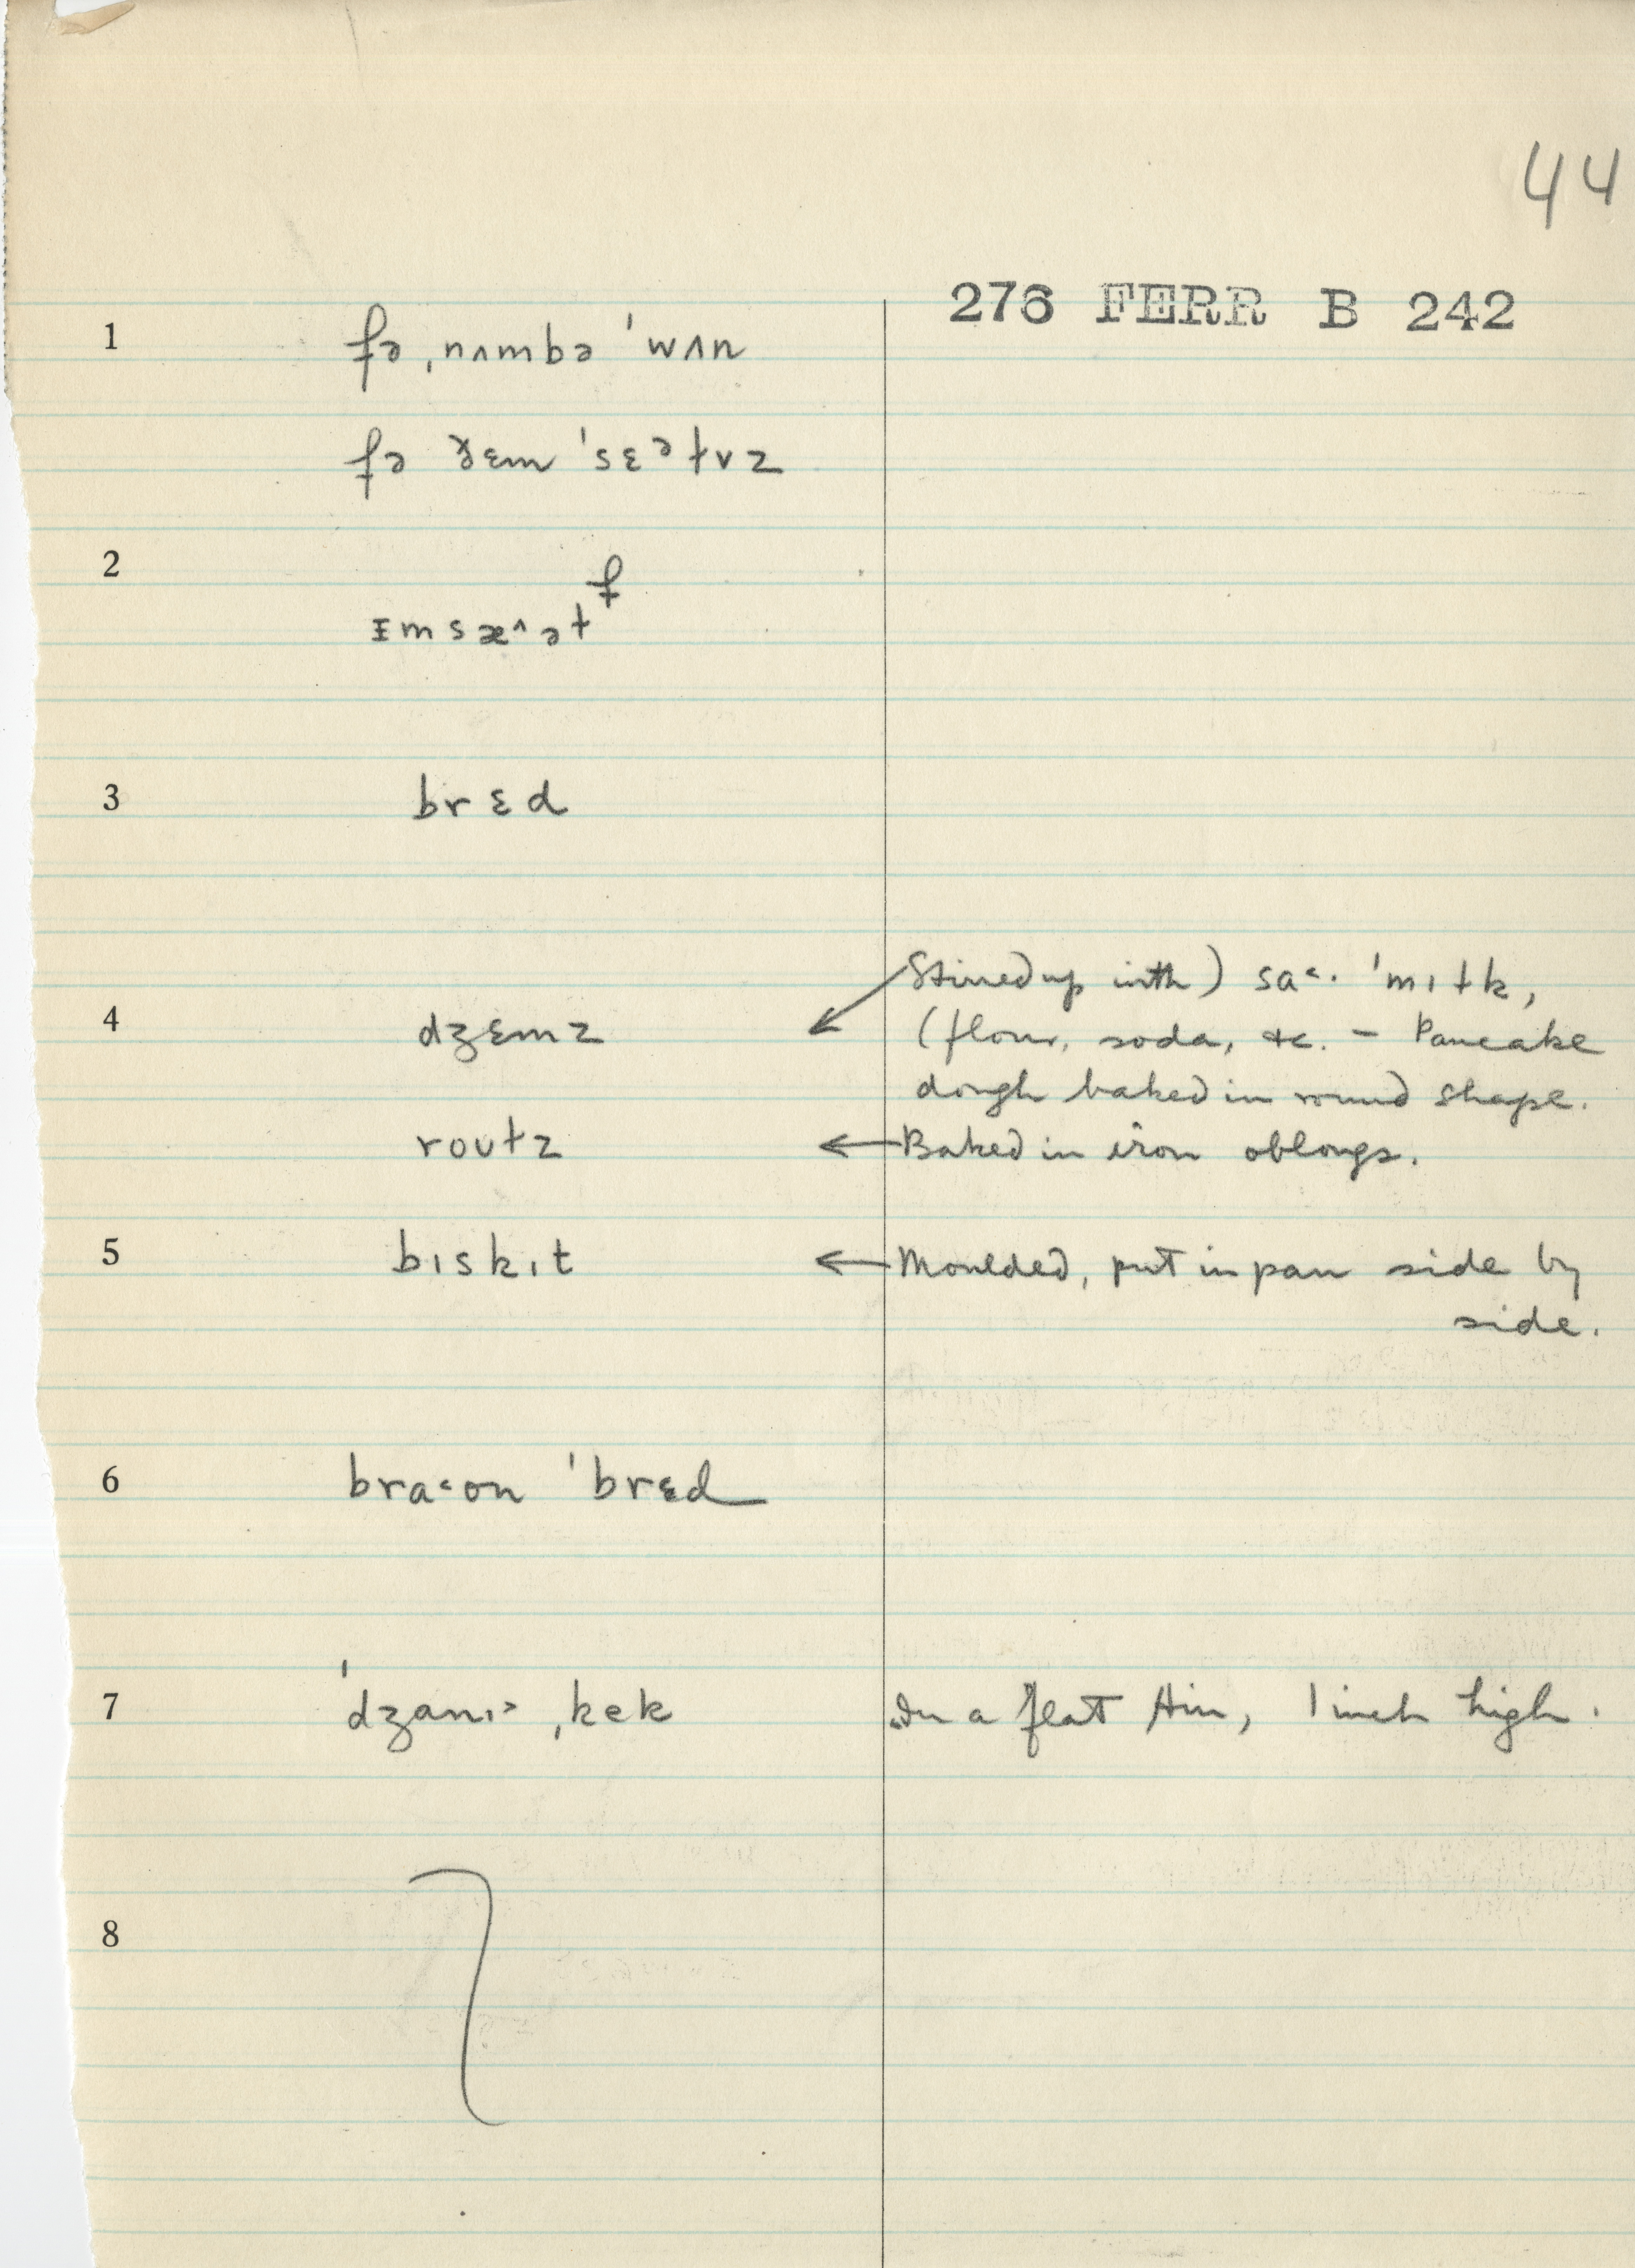 44
276 FERR B 242
1 fə ˌnʌmbə ˈwʌn
fə ðɛm ˈsɛᵊɫvz
2
ɪmsæ^əɫf
3 brɛd
Stirred up with) sa˂· ˈmɪɫk,
4 dʒɛmz (flour, soda, &c. – Pancake
dough baked in round shape.
roʊɫz ← Baked in iron oblongs.
5 bɪskɪt ← Moulded, put in pan side by
side.
6 bra˂ʊn ˈbrɛd
7 ˈdʒanɪ˃ ˌkek In a flat tin, 1 inch high.
8